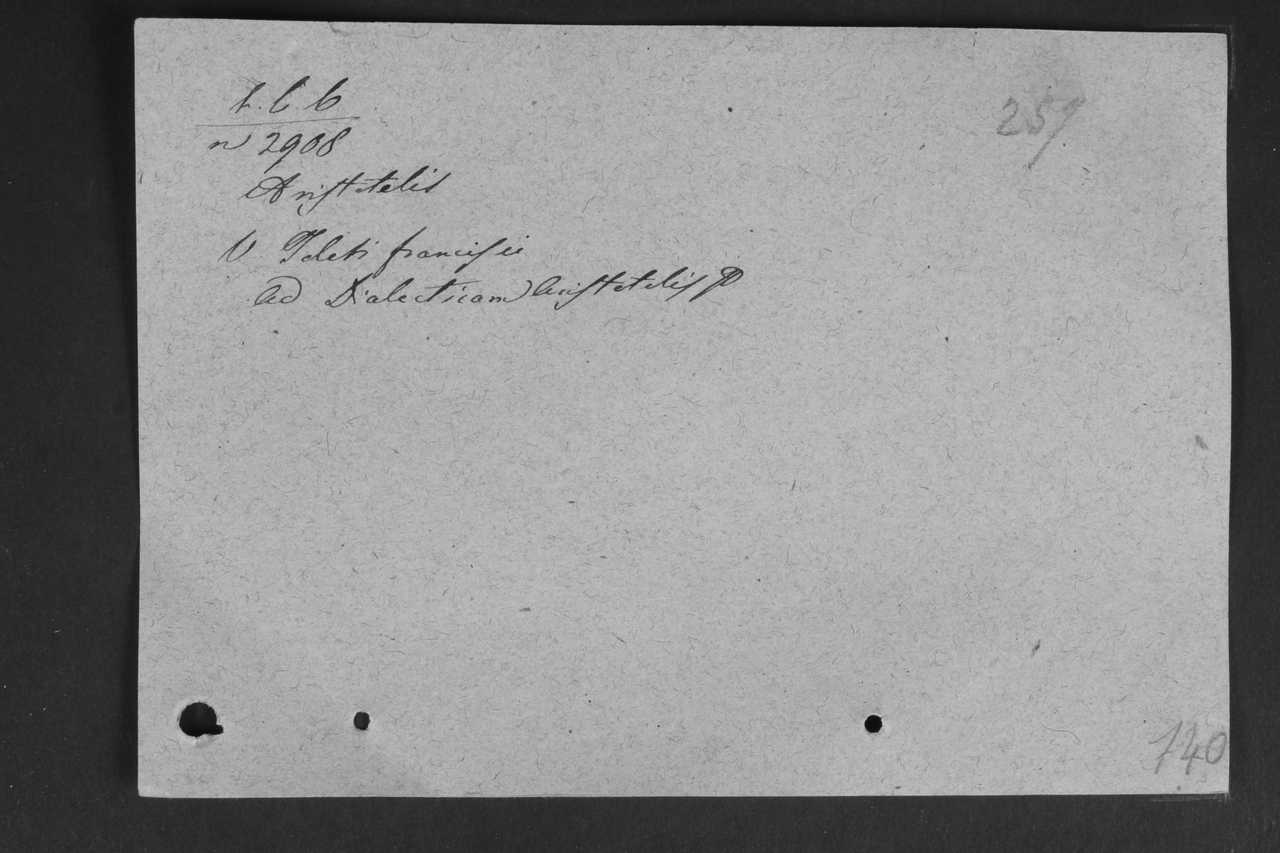 t. C. b
257
n 2908
Aristotelis
V Toleti francisci
Ad Dialecticam Aristotelis
140